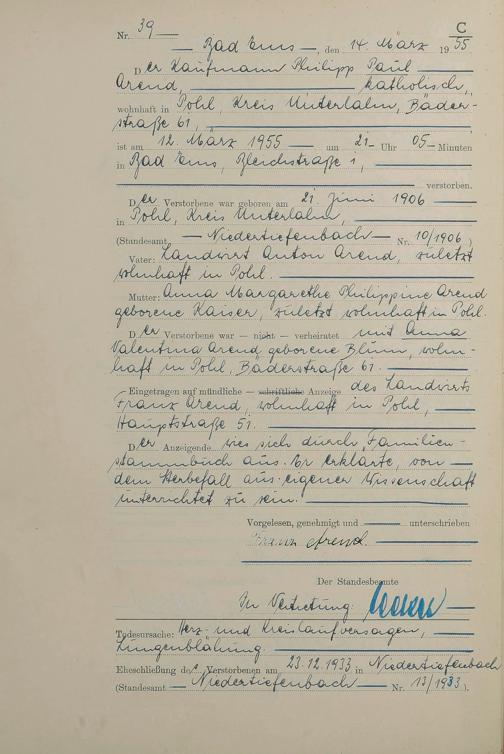 C
Nr. 39
Bad Ems, den 14. März 1955
Der Kaufmann Philipp Paul
Arend, katholisch,
wohnhaft in Pohl, Kreis Unterlahn, Bäder-
straße 61,
ist am 12. März 1955 um 21 Uhr 05 Minuten
in Bad Ems, Bleichstraße 1,
verstorben.
Der Verstorbene war geboren am 21. Juni 1906
in Pohl, Kreis Unterlahn,
(Standesamt Niedertiefenbach Nr. 10/1906)
Vater: Landwirt Anton Arend, zuletzt
wohnhaft in Pohl.
Mutter: Anna Margarethe Philippine Arend
geborene Kaiser, zuletzt wohnhaft in Pohl.
Der Verstorbene war — nicht — verheiratet mit Anna
Valentina Arend geborene Blum, wohn-
haft in Pohl, Bäderstraße 61.
Eingetragen auf mündliche — schriftliche Anzeige des Landwirts
Franz Arend, wohnhaft in Pohl,
Hauptstraße 51.
Der Anzeigende wies sich durch Familien-
stammbuch aus. Er erklärte, von
dem Sterbefall aus eigener Wissenschaft
unterrichtet zu sein.
Vorgelesen, genehmigt und unterschrieben
Franz Arend.
Der Standesbeamte
In Vertretung:
Todesursache: Herz- und Kreislaufversagen,
Lungenblähung.
Eheschließung des Verstorbenen am 23.12.1933 in Niedertiefenbach
(Standesamt Niedertiefenbach Nr. 13/1933).